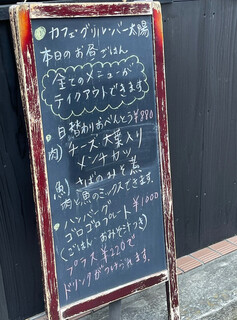 カフェ・グリル・バー太陽
本日のお昼ごはん
全てのメニューが
テイクアウトできます
日替わりおべんとう¥890
肉)チーズ大葉入り
メンチカツ
魚)さばのみそ煮
肉と魚のミックスできます。
ハンバーグ
ゴロゴロプレート ¥1000
(ごはん・おみそ汁つき)
プラス¥220で
ドリンクがつけられます。